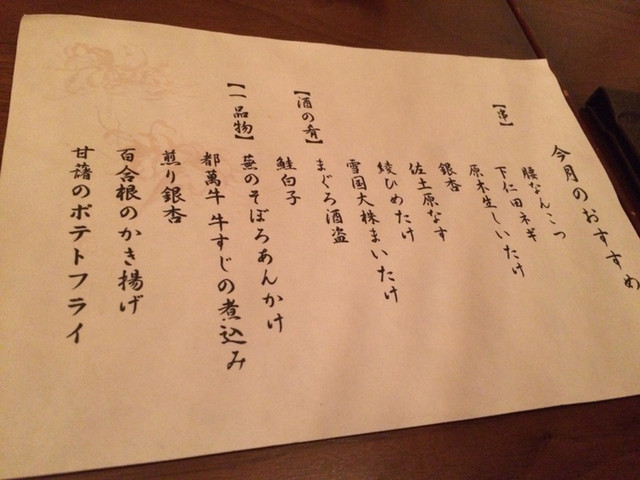 今月のおすすめ
【串】
腰なんこつ
下仁田ネギ
原木生しいたけ
銀杏
佐土原なす
綾ひめたけ
雪国大株まいたけ
【酒の肴】
まぐろ酒盗
鮭白子
【一品物】
蕪のそぼろあんかけ
都萬牛 牛すじの煮込み
煎り銀杏
百合根のかき揚げ
甘藷のポテトフライ